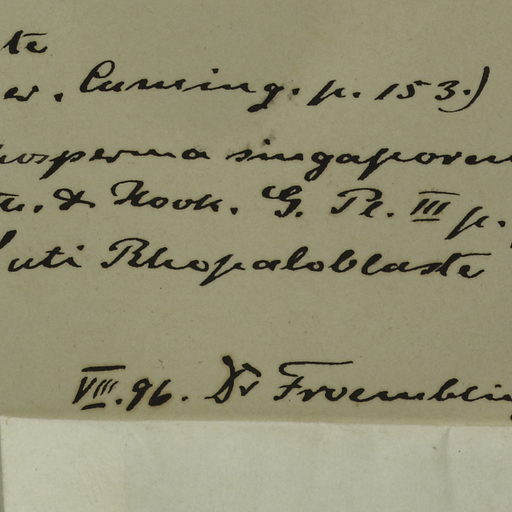 te
er. Cuming. p. 153.)
hosperma singaporen
th. & Hook. G. Pl. III p.
uti Rhopaloblaste
VIII. 96. Dr Froembling